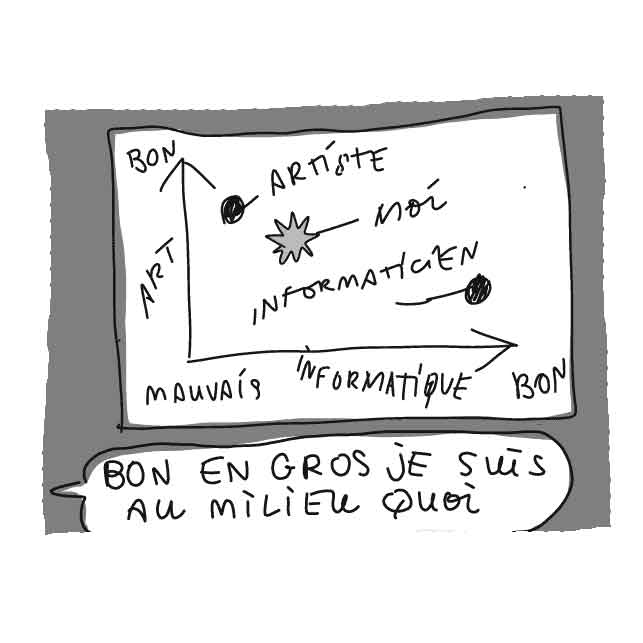 BON
ARTiSTE
MOi
ART
INFORMATiCiEN
MAUVAiS
INFORMATiQUE
BON
BON EN GROS jE SUiS
AU MiLiEU QUOi